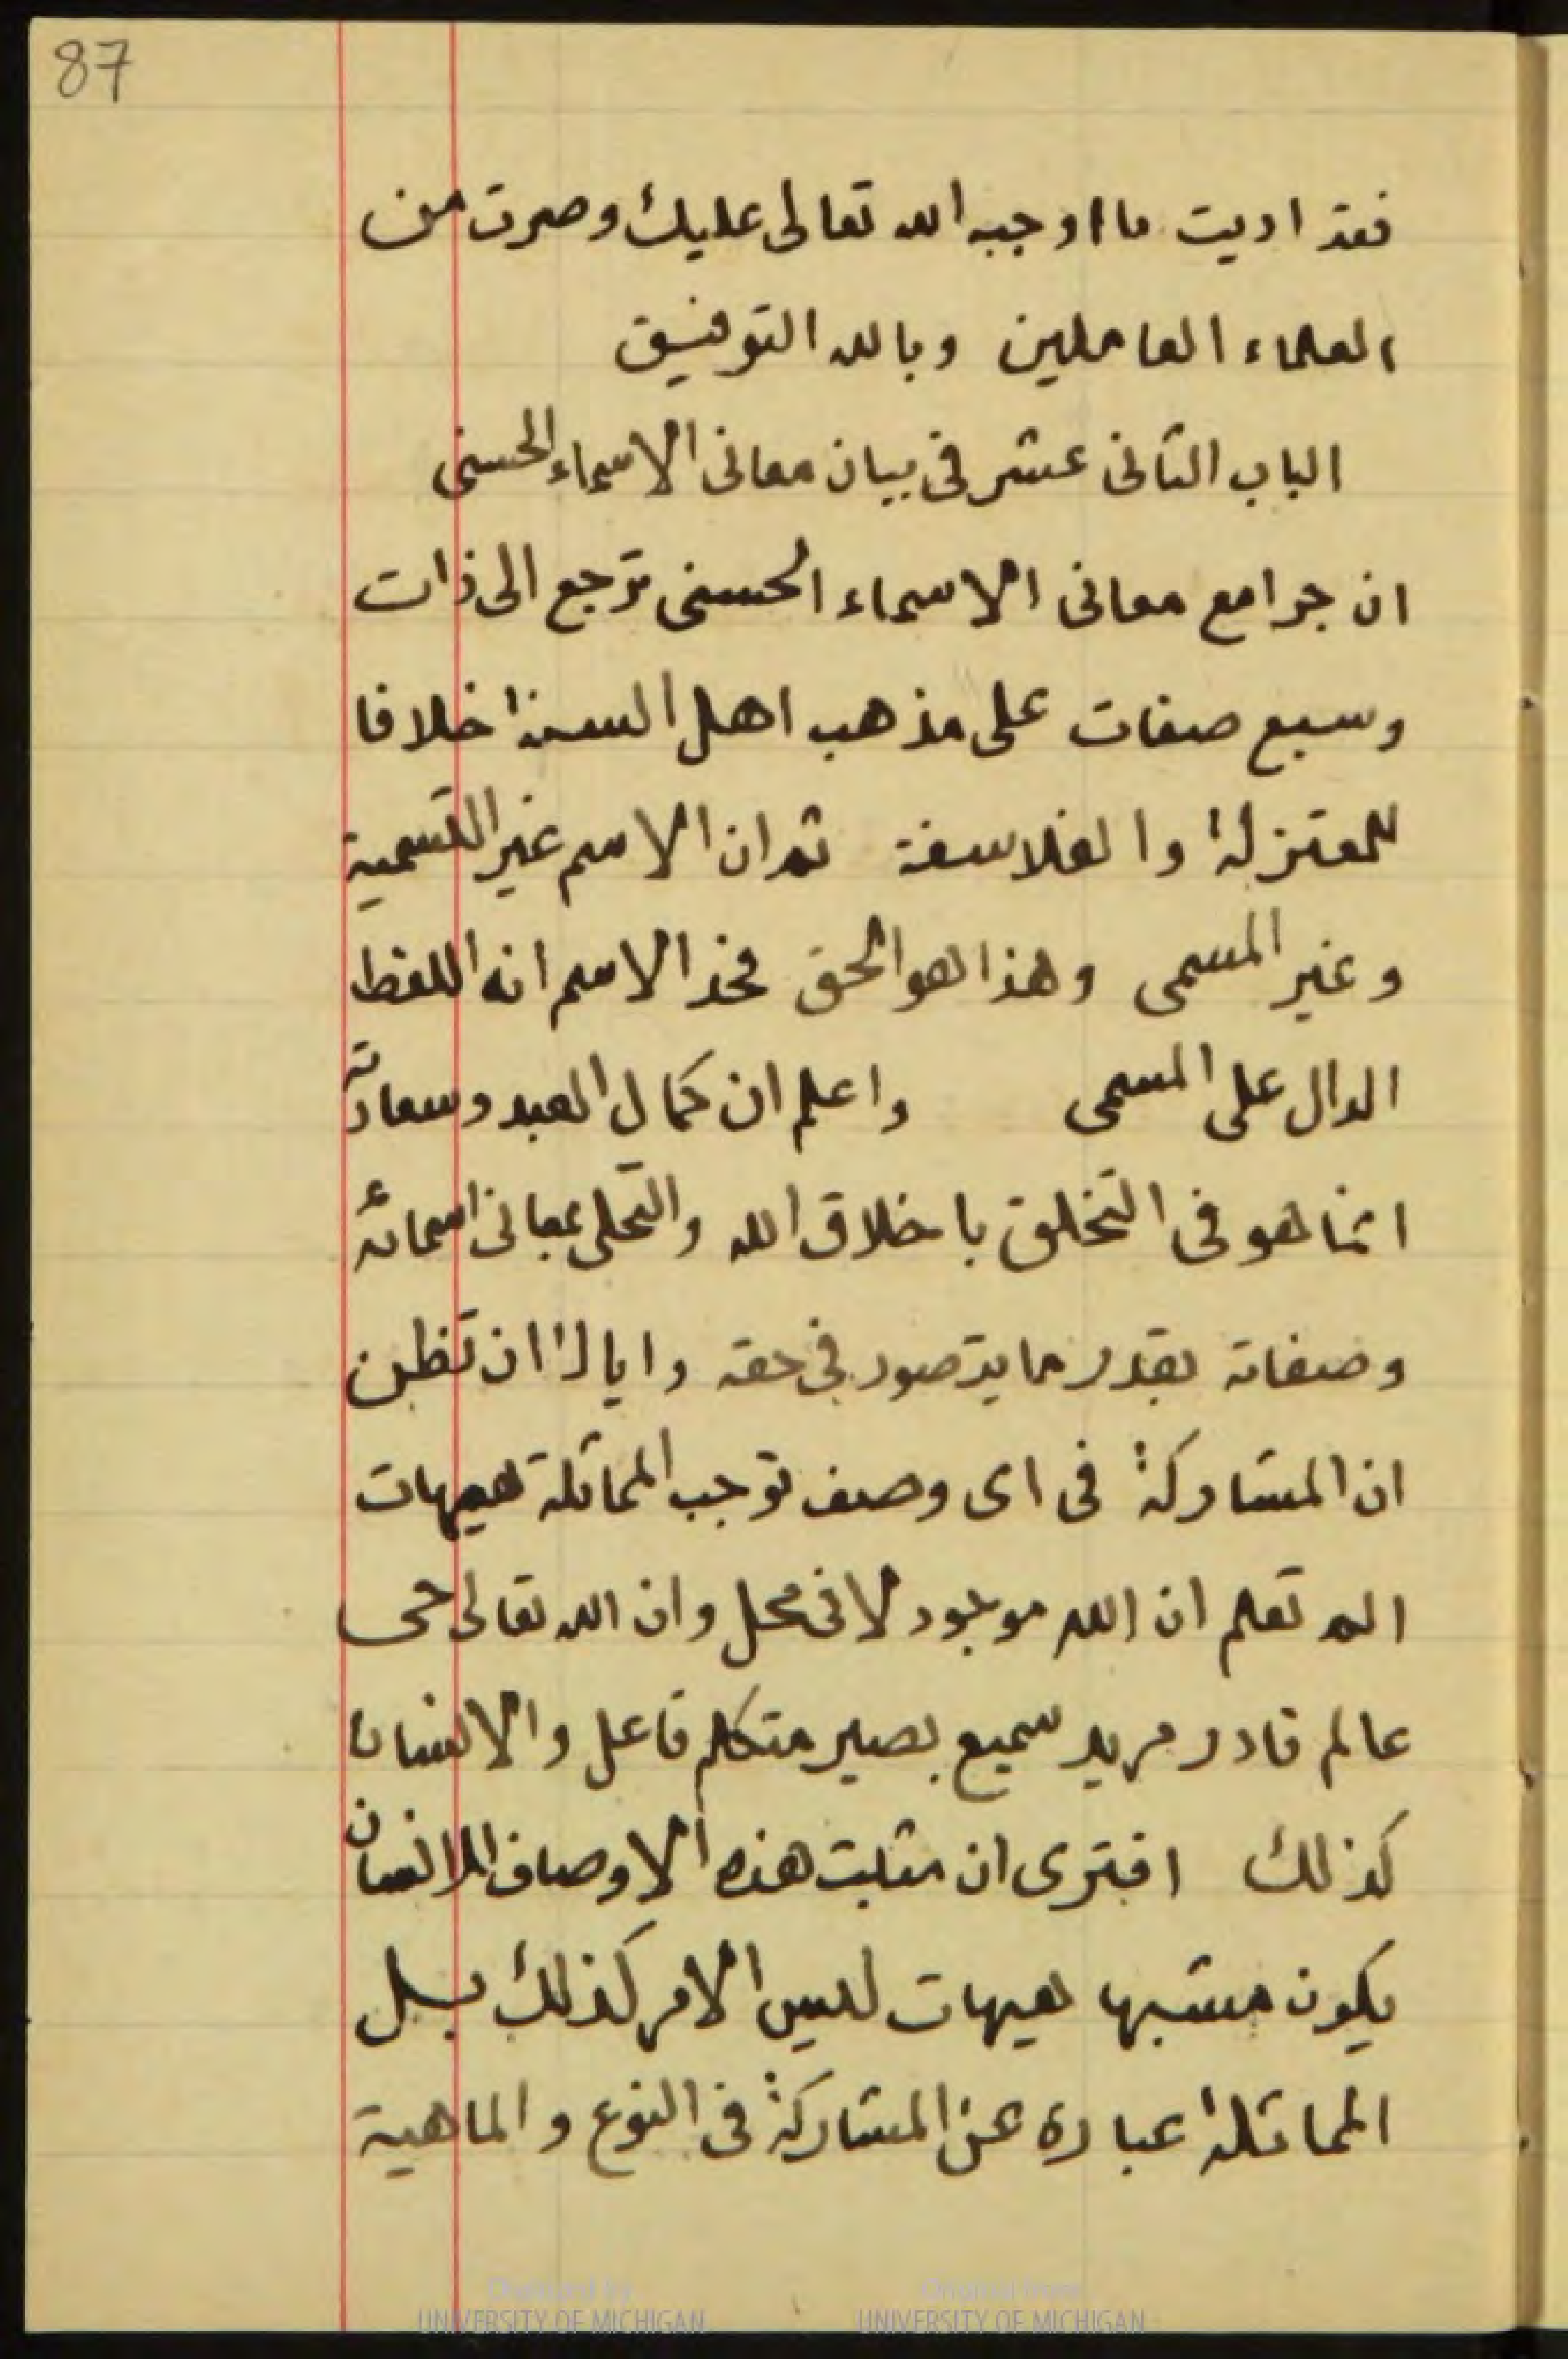 87
فقد اديت ما اوجبه الله تعالى عليك وصرت من
العلماء العاملين وبالله التوفيق
الباب الثانى عشر فى بيان معانى الاسماء الحسنى
ان جوامع معانى الاسماء الحسنى ترجع الى ذات
وسبع صفات على مذهب اهل السنة خلافا
للمعتزلة والفلاسفة ثم ان الاسم غير التسمية
وغير المسمى وهذا هو الحق فحد الاسم انه اللفظ
الدال على المسمى واعلم ان كمال العبد وسعادته
انما هو فى التخلق باخلاق الله والتحلى بمعانى اسمائه
وصفاته بقدر ما يتصور فى حقه واياك ان تظن
ان المشاركة فى اى وصف توجب المماثلة هيهات
الم تعلم ان الله موجود لا فى محل وان الله تعالى حى
عالم قادر مريد سميع بصير متكلم فاعل والانسان
كذلك افترى ان مثبت هذه الاوصاف للانسان
يكون مشبها هيهات ليس الامر كذلك بل
المماثلة عبارة عن المشاركة فى النوع والماهية
Digitized by
UNIVERSITY OF MICHIGAN
Original from
UNIVERSITY OF MICHIGAN